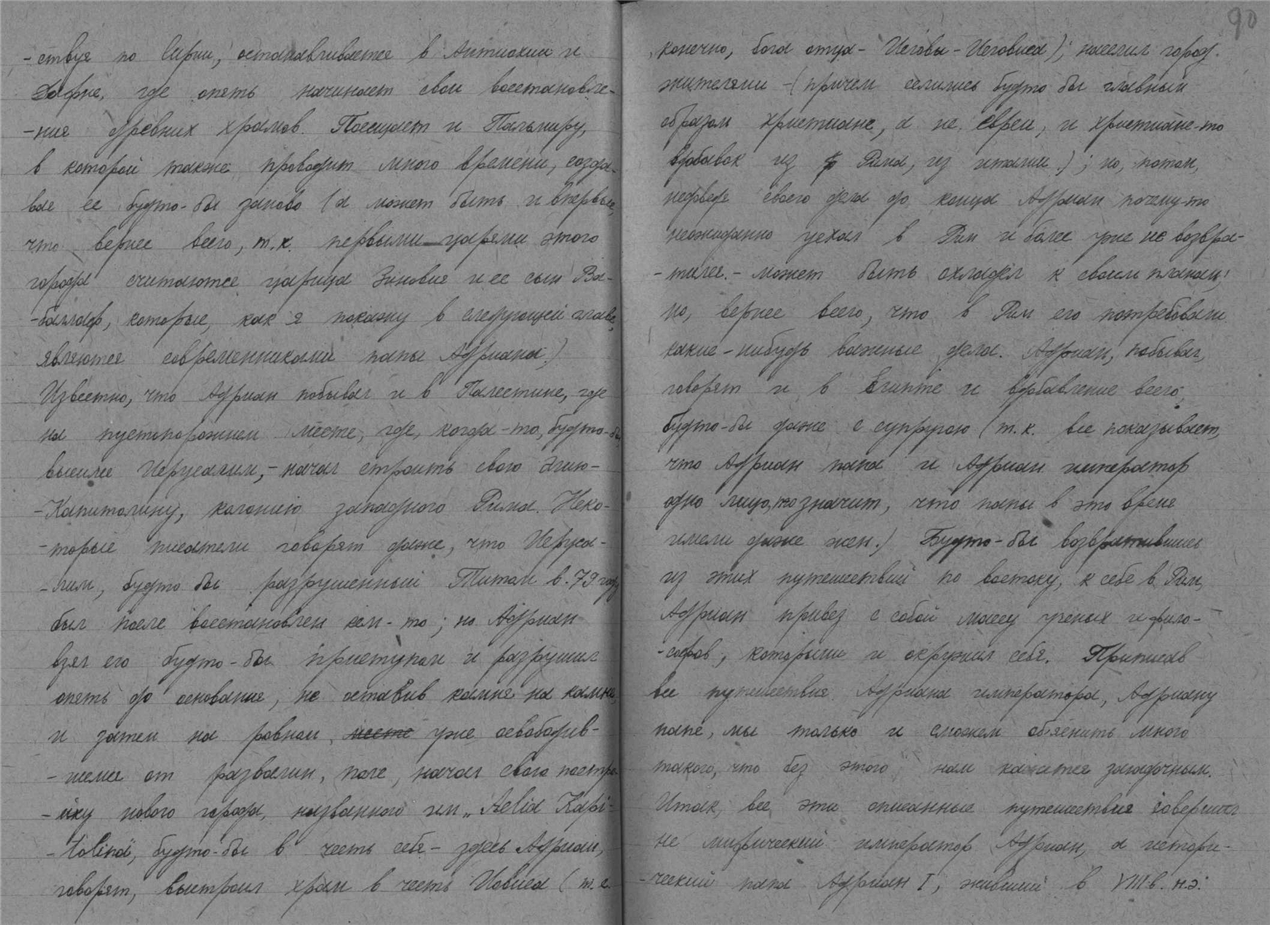 90
-ствуя по Сирии, останавливается в Антиохии и
Дафне, где опять начинает свои восстановле-
-ния древних храмов. Посещает и Пальмиру,
в которой также проводит много времени, созда-
вая ее будто-бы заново (а может быть и впервые,
что вернее всего, т.к. первыми царями этого
города считаются царица Зиновия и ее сын Ва-
-баллаф, которые, как я покажу в следующей главе,
являются современниками папы Адриана.)
Известно, что Адриан побывал и в Палестине, где
на пустопорожнем месте, где, когда-то, будто-бы
высился Иерусалим, - начал строить свою Элию-
-Капитолину, колонию западного Рима. Неко-
-торые писатели говорят даже, что Иеруса-
-лим, будто бы разрушенный Титом в 70 году
был после восстановлен кем-то; но Адриан
взял его будто-бы приступом и разрушил
опять до основания, не оставив камня на камне
и затем на ровном, месте уже освободив-
-шемся от развалин, поле, начал свою постро-
-йку нового города, названного им „Aelia Kapi-
-tolina, будто-бы в честь себя - здесь Адриан,
говорят, выстроил храм в честь Иовиса (т.е.
конечно, бога отца - Иеговы - Иеговиса); населил город
жителями - (причем селились будто бы главным
образом христиане, а не евреи, и христиане-то
вдобавок из Рима, из италии.); но, потом,
недоведя своего дела до конца Адриан почему-то
неожиданно уехал в Рим и более уже не возвра-
-тился. - может быть охладел к своим планам;
но, вернее всего, что в Рим его потребовали
какие-нибудь важные дела. Адриан, побывал,
говорят и в Египте и вдобавление всего,
будто-бы даже с супругою (т.к. все показывает,
что Адриан папа и Адриан император
одно лицо, то значит, что папы в это время
имели даже жен.) Будто-бы возвратившись
из этих путешествий по востоку, к себе в Рим,
Адриан привез с собой массу ученых и фило-
-софов, которыми и окружил себя. Приписав
все путешествия Адриана императора, Адриану
папе, мы только и сможем объяснить много
такого, что без этого нам кажется загадочным.
Итак, все эти описанные путешествия совершил
не мифический император Адриан, а истори-
-ческий папа Адриан I, живший в VIII в. н.э.